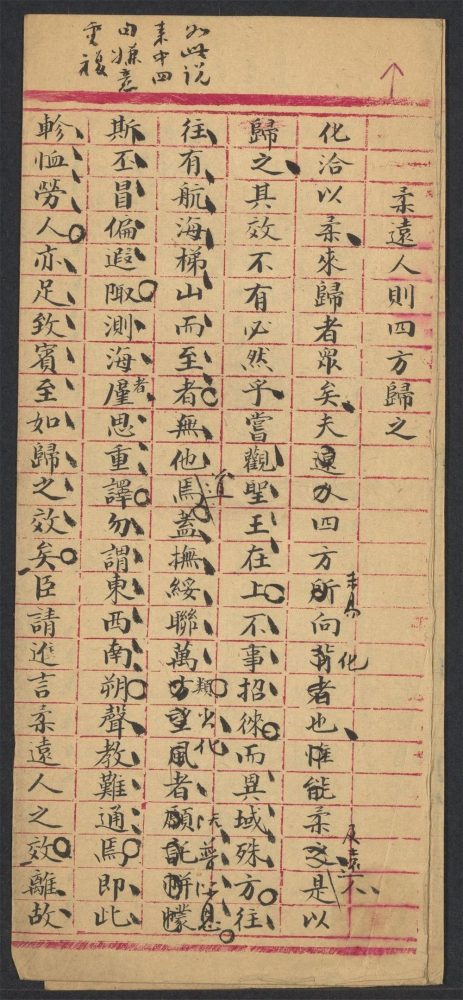 如此说
来中四
由嫌意
重複
柔遠人則四方歸之
化洽以柔來歸者眾矣夫遠人四方所未易向背化者也惟能柔之及遠人是以
歸之其效不有必然乎嘗觀聖王在上不事招徠而異域殊方往
往有航海梯山而至者無他焉道蓋撫綏聯萬方類望風者願託帡幪
斯丕冒偏遐陬測海者僅思重譯勿謂東西南朔聲教難通焉即此
軫恤勞人亦足致賓至如歸之效矣臣請進言柔遠人之效離故